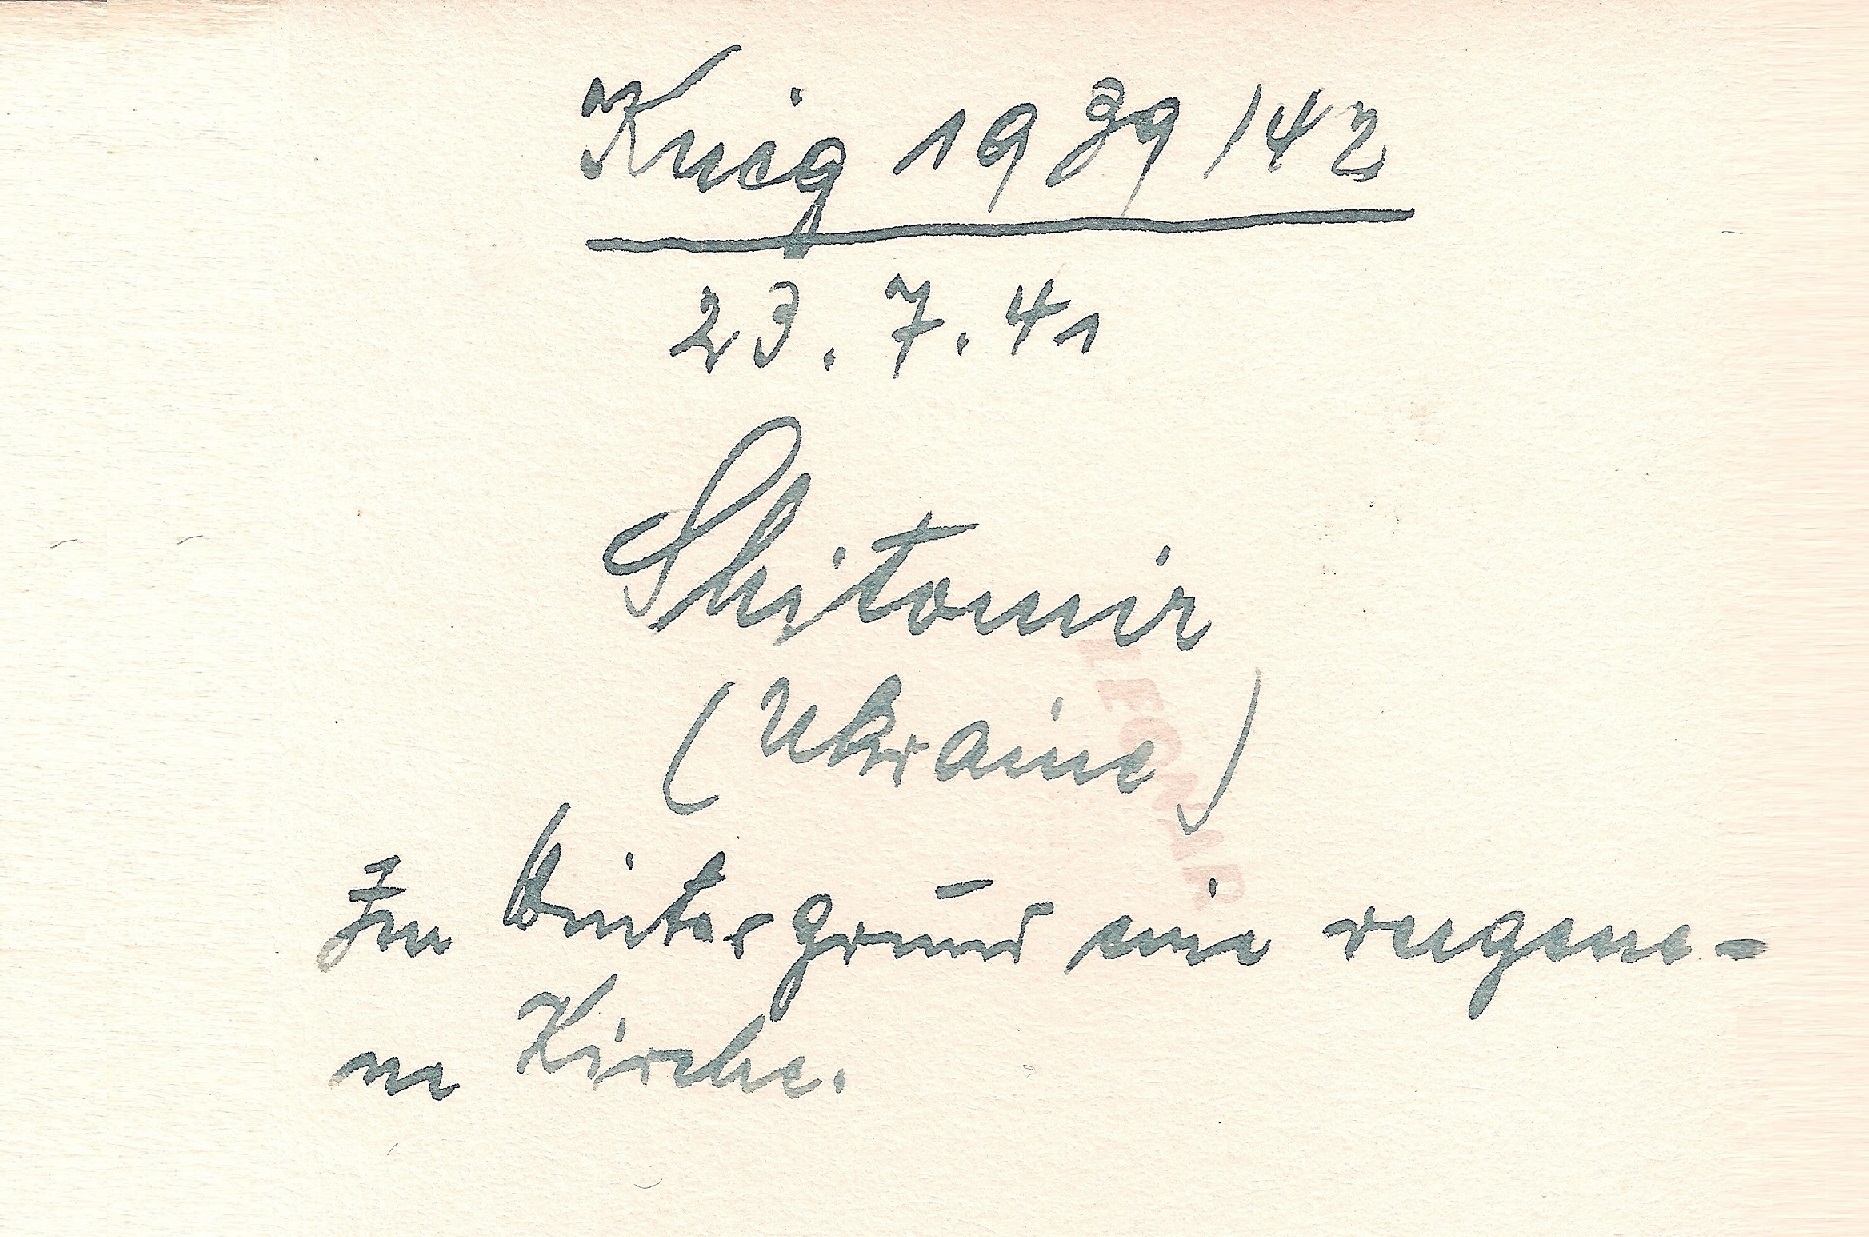 Krieg 1939/42
23.7.41
Shitomir
(Ukraine)
Im Hintergrund eine
ne Kirche.
LEONAR